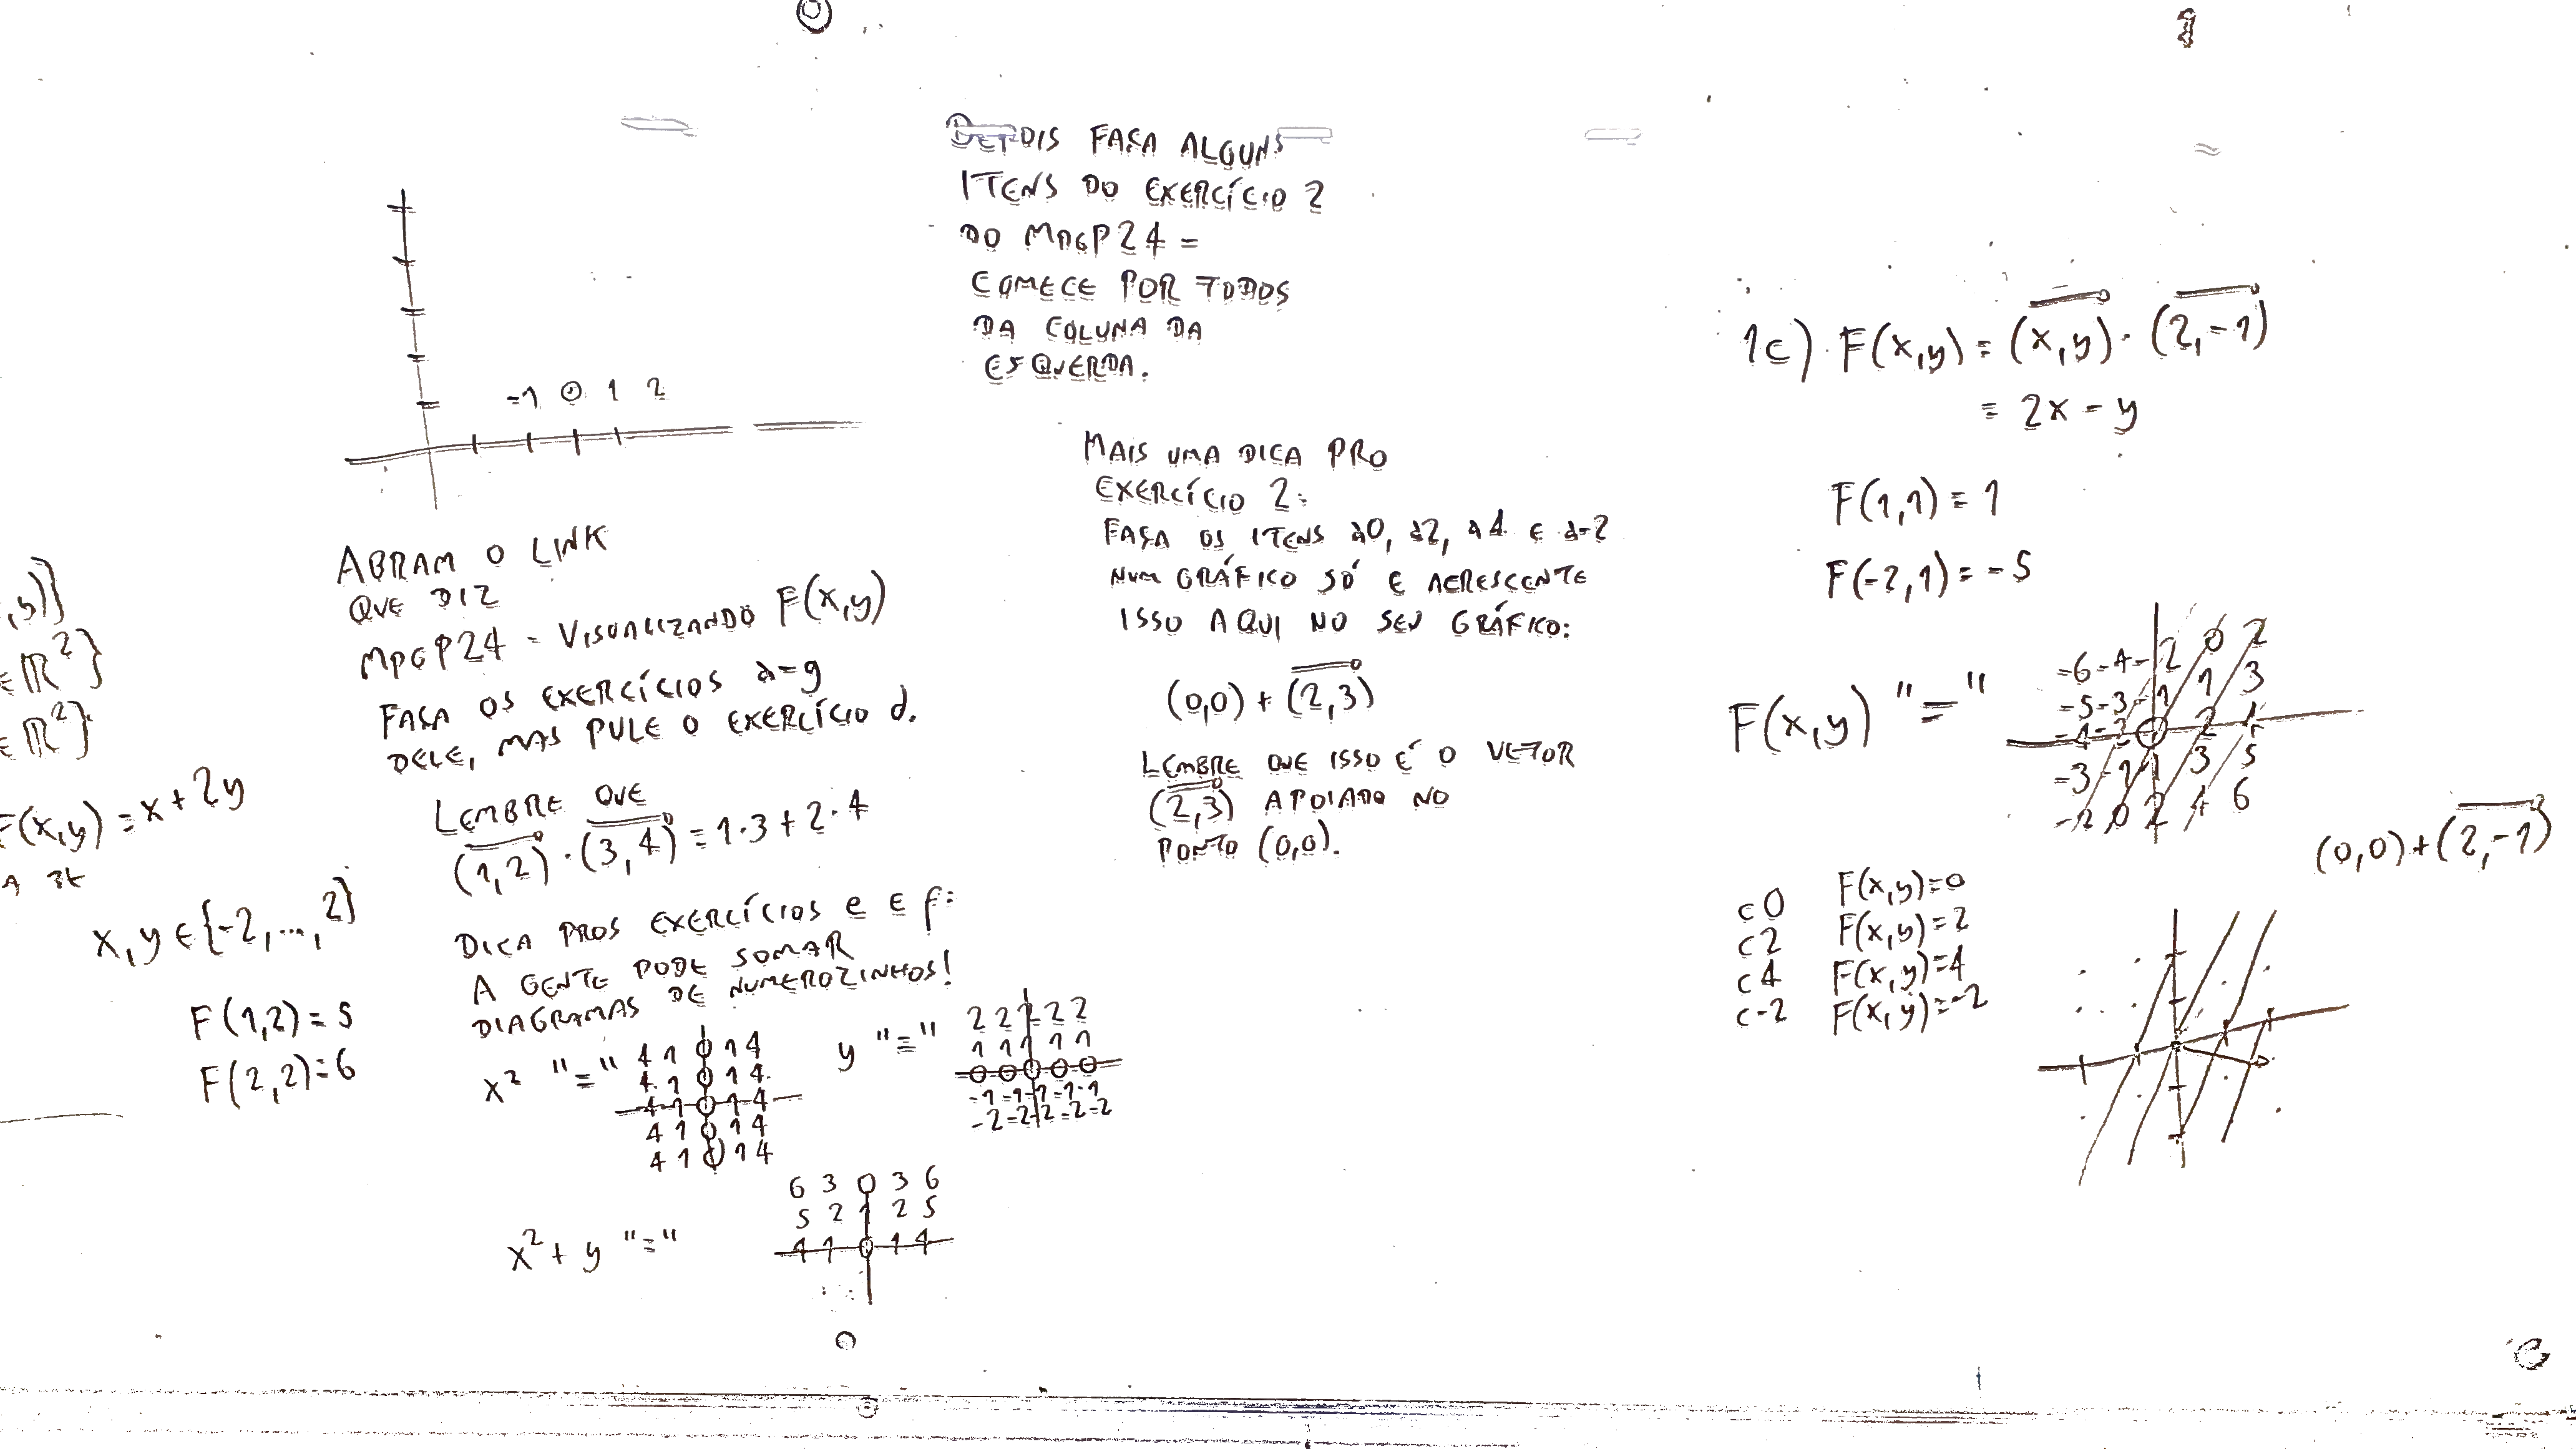 -1 0 1 2
ABRAM O LINK
QUE DIZ
MPGP24 - VISUALIZANDO F(x,y)
FAÇA OS EXERCÍCIOS a-g
DELE, MAS PULE O EXERCÍCIO d.
LEMBRE QUE
(1,2)·(3,4)=1·3+2·4
DICA PROS EXERCÍCIOS e E f:
A GENTE PODE SOMAR
DIAGRAMAS DE NUMEROZINHOS!
x² "="
4 1 0 1 4
4 1 0 1 4
4 1 0 1 4
4 1 0 1 4
4 1 0 1 4
y "="
2 2 2 2 2
1 1 1 1 1
0 0 0 0 0
-1 -1 -1 -1 -1
-2 -2 -2 -2 -2
x²+y "="
6 3 0 3 6
5 2 1 2 5
4 1 0 1 4
,y)}
∈ℝ²}
∈ℝ²}
F(x,y)=x+2y
x,y∈{-2,...,2}
F(1,2)=5
F(2,2)=6
DEPOIS FAÇA ALGUNS
ITENS DO EXERCÍCIO 2
DO MPGP24 -
COMECE POR TODOS
DA COLUNA DA
ESQUERDA.
MAIS UMA DICA PRO
EXERCÍCIO 2:
FAÇA OS ITENS a0, a2, a4 E a-2
NUM GRÁFICO SÓ E ACRESCENTE
ISSO AQUI NO SEU GRÁFICO:
(0,0)+(2,3)
LEMBRE QUE ISSO É O VETOR
(2,3) APOIADO NO
PONTO (0,0).
1c) F(x,y)=(x,y)·(2,-1)
= 2x-y
F(1,1)=1
F(-2,1)=-5
F(x,y) "="
-6 -4 -2 0 2
-5 -3 -1 1 3
-4 -2 0 2 4
-3 -1 1 3 5
-2 0 2 4 6
(0,0)+(2,-1)
c0 F(x,y)=0
c2 F(x,y)=2
c4 F(x,y)=4
c-2 F(x,y)=-2